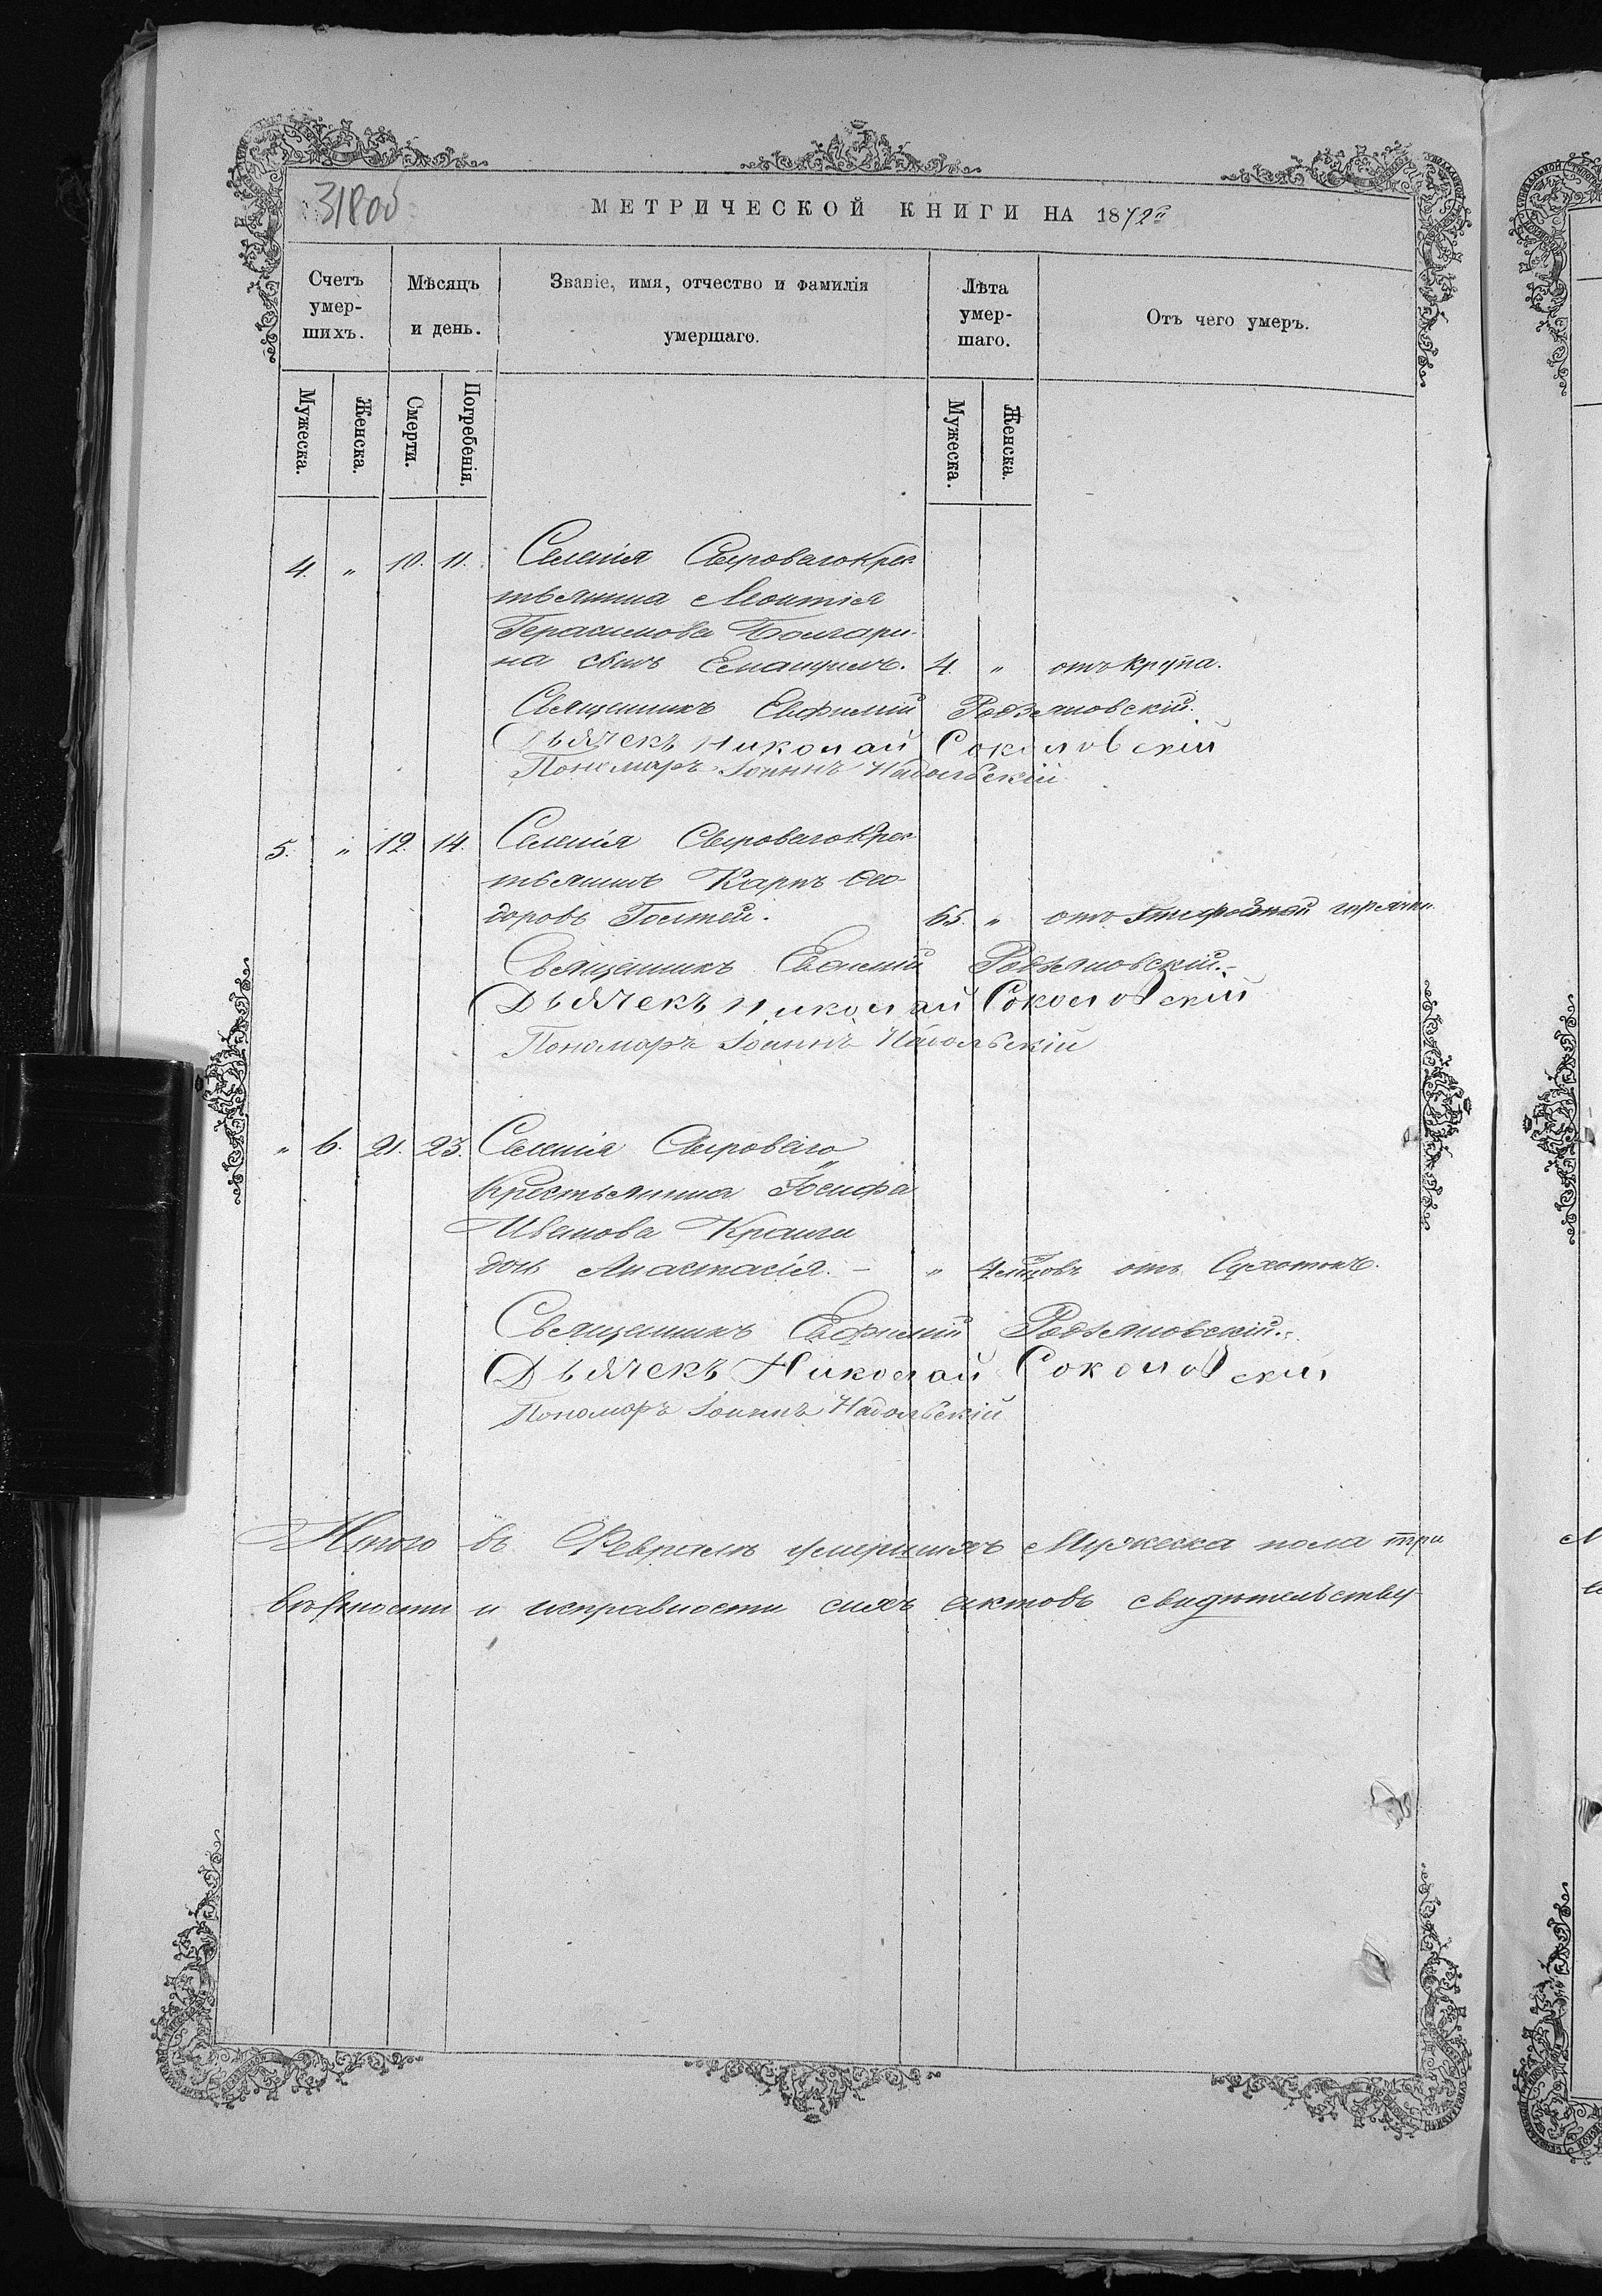 318 об
МЕТРИЧЕСКОЙ КНИГИ НА 1872 й
Счетъ умер-шихъ. Мѣсяцъ и день. Званіе, имя, отчество и фамилія умершаго. Лѣта умер-шаго. Отъ чего умеръ.
Мужеска. Женска. Смерти. Погребенія. Мужеска. Женска.
4. " 10. 11. Селенія Сыроваго крес-
тьянина Леонтія
Герасимова Болгари-
на сынъ Емануилъ. 4. " отъ крупа.
Священникъ Евфимій Родзяновскій.
Дьячекъ Николай Соколовскій
Пономаръ Іоаннъ Надольскій
5. " 12. 14. Селенія Сыроваго Крес-
тьянинъ Карпъ Ѳео-
доровъ Голтей. 65. " отъ тифозной горячки.
Священникъ Евфимій Родзяновскій.
Дьячекъ Николай Соколовскій
Пономаръ Іоаннъ Надольскій
" 6. 21. 23. Селенія Сыроваго
Крестьянина Іосифа
Иванова
дочь Анастасія. " 4 мѣсцовъ отъ Сухотокъ.
Священникъ Евфимій Родзяновскій.
Дьячекъ Николай Соколовскій
Пономаръ Іоаннъ Надольскій
Итого въ Февралѣ умершихъ Мужеска пола три
вѣрности и исправности сихъ актовъ свидѣтельству-